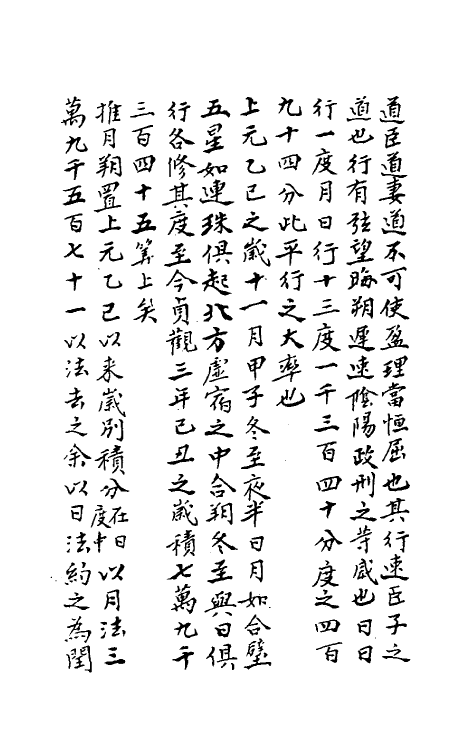 道臣道妻道不可使盈理當恒屈也其行速臣子之
道也行有弦望晦朔遲速陰陽政刑之等咸也日日
行一度月日行十三度一千三百四十分度之四百
九十四分此平行之大率也
上元乙巳之歲十一月甲子冬至夜半日月如合璧
五星如連珠俱起北方虛宿之中合朔冬至與日俱
行各修其度至今貞觀三年己丑之歲積七萬九千
三百四十五筭上矣
推月朔置上元乙巳以来歲別積分在日度中以月法三
萬九千五百七十一以法去之余以日法約之為閏